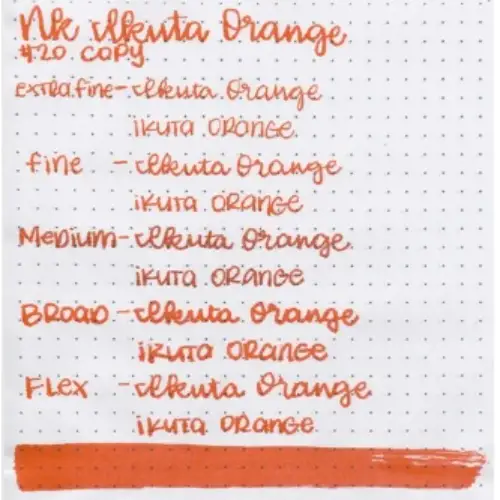 NK Ikuta Orange
#20 COPY
extra fine - Ikuta Orange
IKUTA ORANGE
fine - Ikuta Orange
IKUTA ORANGE
Medium - Ikuta Orange
IKUTA ORANGE
BROAD - Ikuta Orange
IKUTA ORANGE
FLEX - Ikuta Orange
IKUTA ORANGE